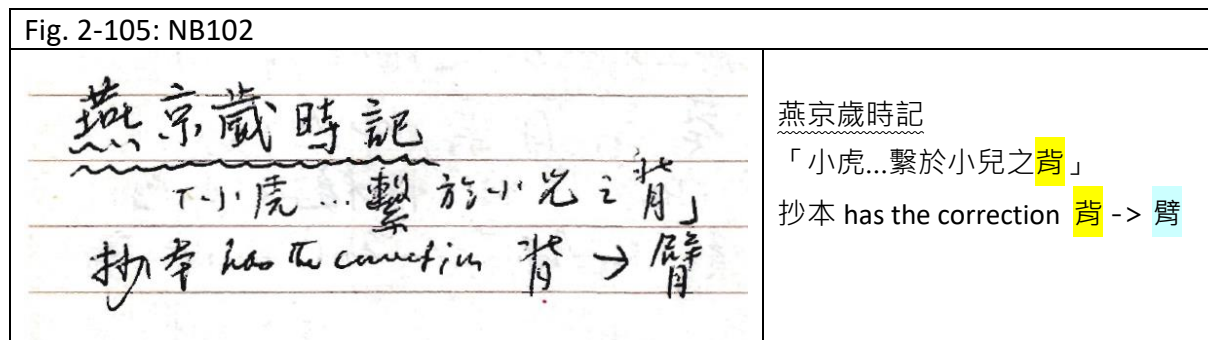 Fig. 2-105: NB102
燕京歲時記
「小虎...繫於小兒之背」
抄本 has the correction 背 → 臂
燕京歲時記
「小虎...繫於小兒之背」
抄本 has the correction 背 -> 臂